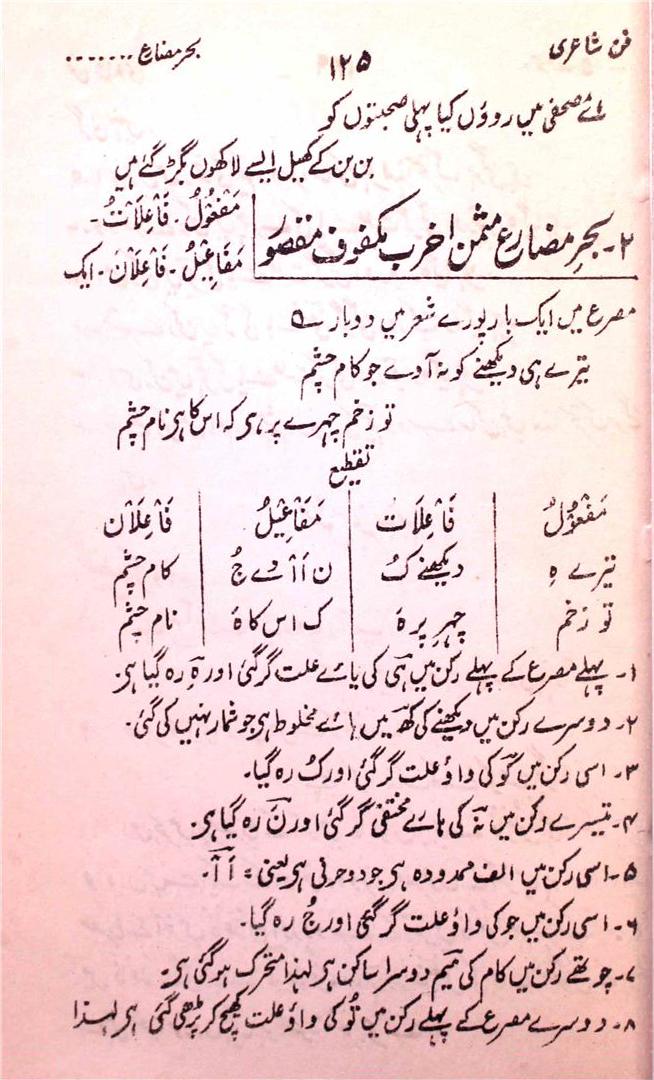 فن شاعری ۱۲۵ بحر مضارع .......
اے مصحفی میں روؤں کیا پہلی صحبتوں کو
بن بن کے کھیل ایسے لاکھوں بگڑ گئے ہیں
۲۔ بحرِ مضارع مثمن اخرب مکفوف مقصور
مَفْعُوْلُ۔ فَاْعِلَاْتُ۔
مَفَاْعِیْلُ۔ فَاْعِلَاْنْ۔ ایک
مصرع میں ایک بار پورے شعر میں دوبار ے
تیرے ہی دیکھنے کو نہ آدے جو کام چشم
تو زخم چہرے پر ہی کہ اس کا ہی نام چشم
تقطیع
مَفْعُوْلُ | فَاْعِلَاْتُ | مَفَاْعِیْلُ | فَاْعِلَاْن
تیرے ہِ | دیکھنے کُ | ن أاْ وے جُ | کام چشم
تو زخم | چہرِ پر ہَ | ک اس کا ہَ | نام چشم
۱۔ پہلے مصرع کے پہلے رکن میں ہی کی یائے علت گر گئی اور ہِ رہ گیا ہی۔
۲۔ دوسرے رکن میں دیکھنے کی کھ میں ہائے مخلوط ہی جو شمار نہیں کی گئی۔
۳۔ اسی رکن میں کو کی واؤ علت گر گئی اور کُ رہ گیا۔
۴۔ تیسرے رکن میں نہ کی ہائے مختفی گر گئی اور نَ رہ گیا ہی۔
۵۔ اسی رکن میں الف ممدودہ ہی جو دو حرفی ہی یعنی = أاْ۔
۶۔ اسی رکن میں جو کی واؤ علت گر گئی اور جُ رہ گیا۔
۷۔ چوتھے رکن میں کام کی میم دوسرا ساکن ہی لہٰذا متحرک ہو گئی ہی۔
۸۔ دوسرے مصرع کے پہلے رکن میں تُو کی واؤ علت کھینچ کر پڑھی گئی ہی لہٰذا